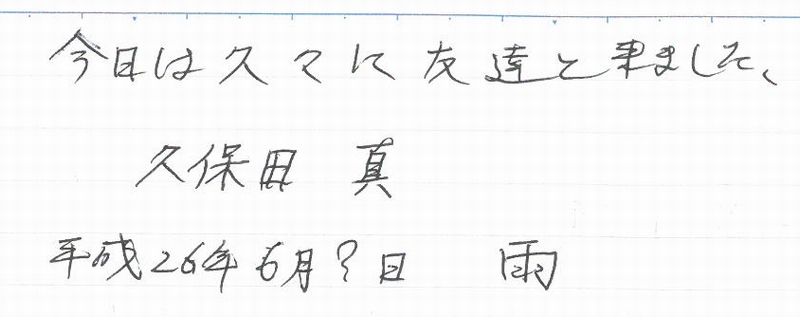 今日は久々に友達と来ました、
久保田 真
平成26年6月?日 雨